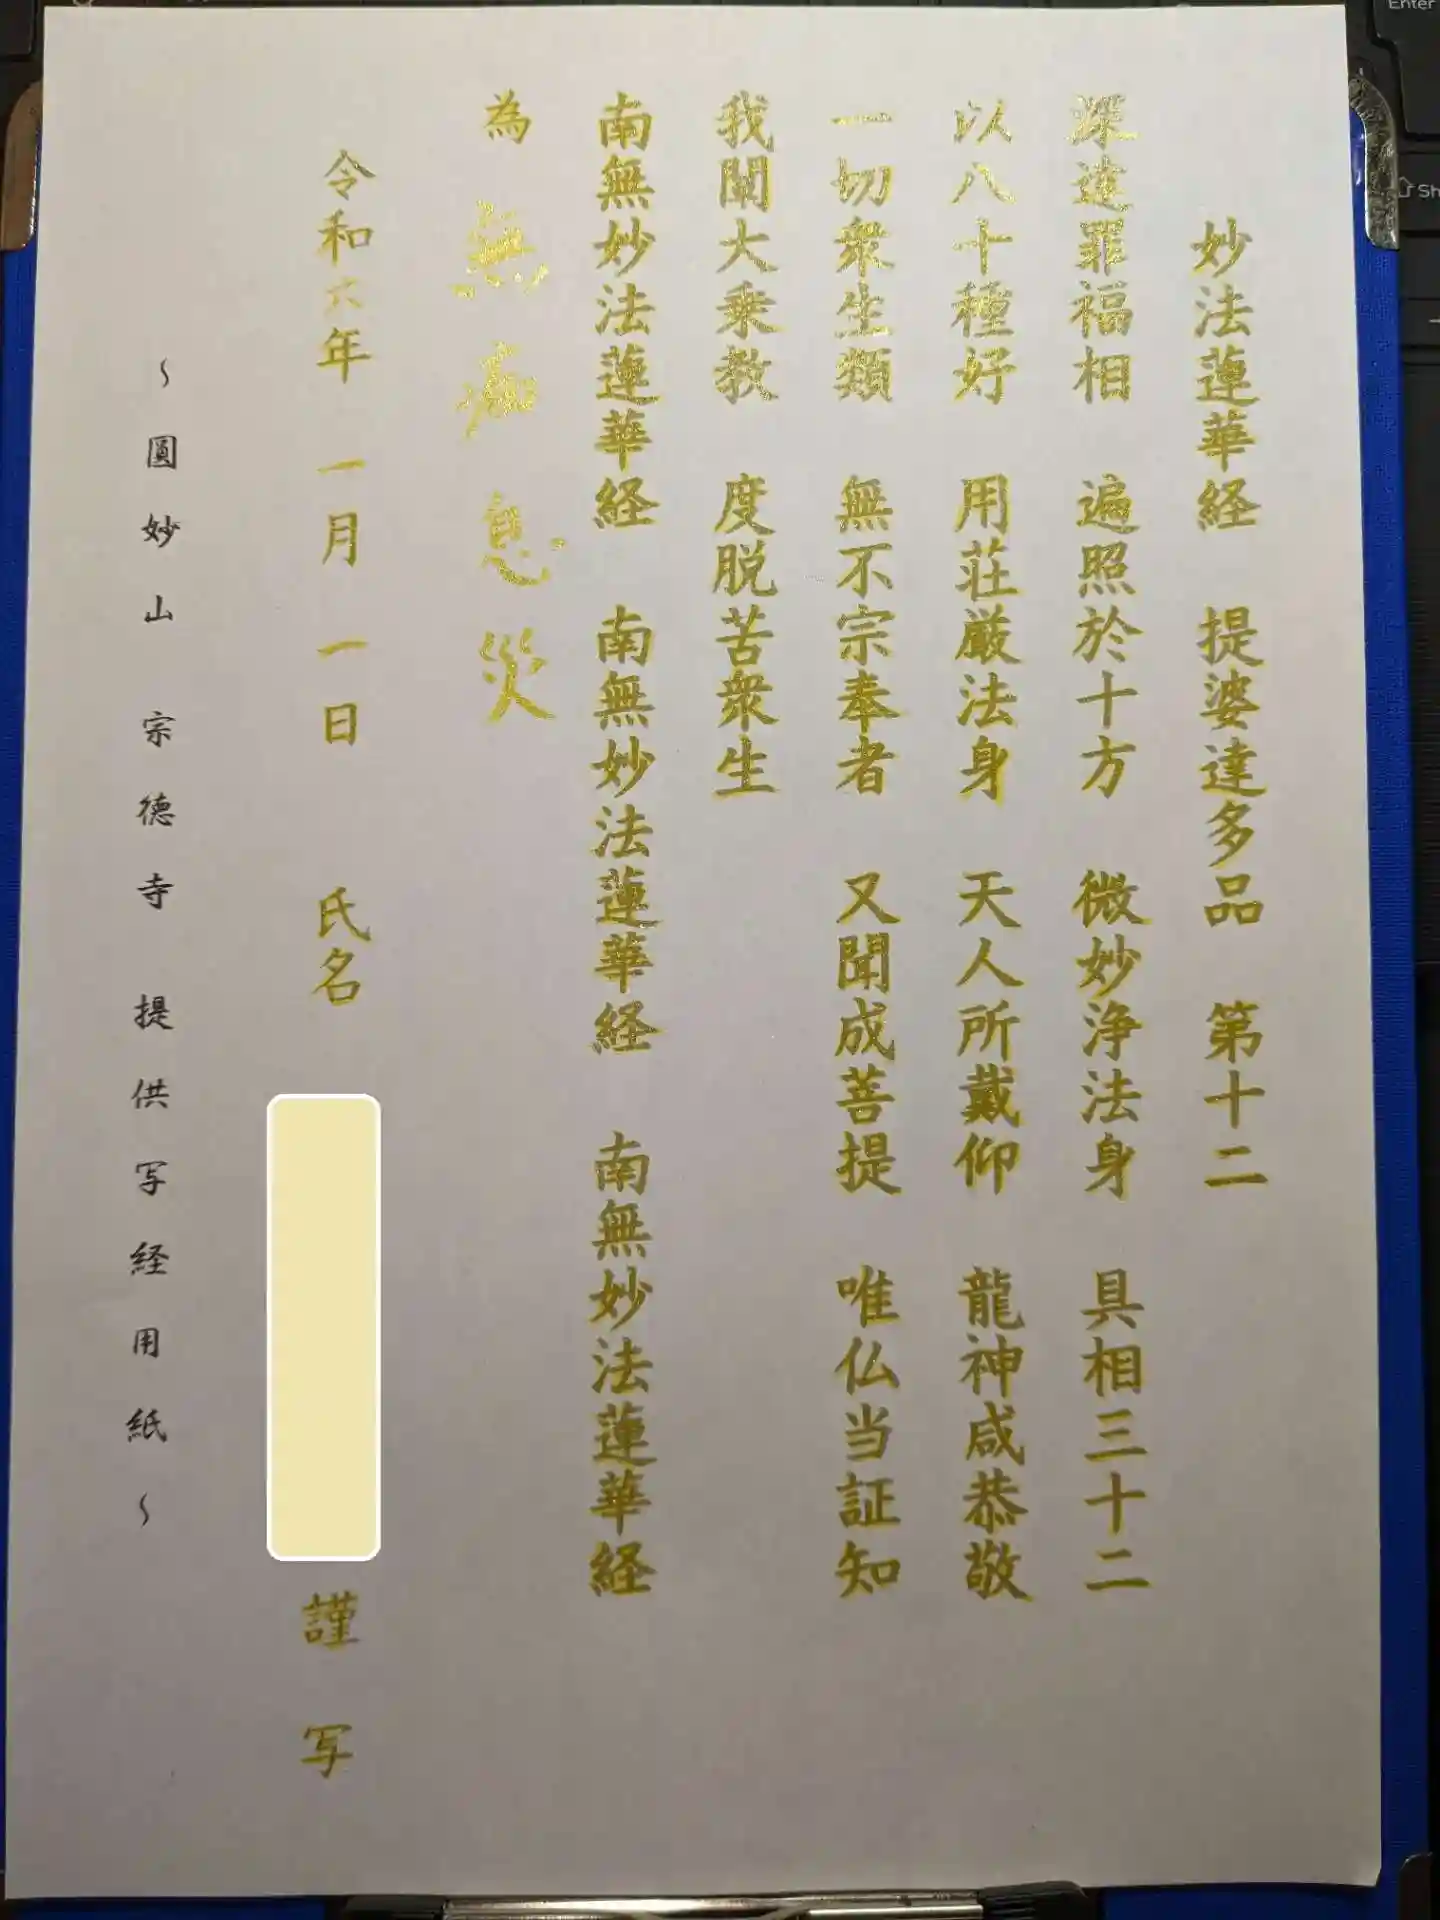 妙法蓮華経 提婆達多品 第十二
深達罪福相 遍照於十方 微妙浄法身 具相三十二
以八十種好 用荘厳法身 天人所戴仰 龍神咸恭敬
一切衆生類 無不宗奉者 又聞成菩提 唯仏当証知
我闡大乗教 度脱苦衆生
南無妙法蓮華経 南無妙法蓮華経 南無妙法蓮華経
為 無病息災
令和六年 一月 一日 氏名 謹写
~圓妙山 宗徳寺 提供写経用紙~
Enter
Sh